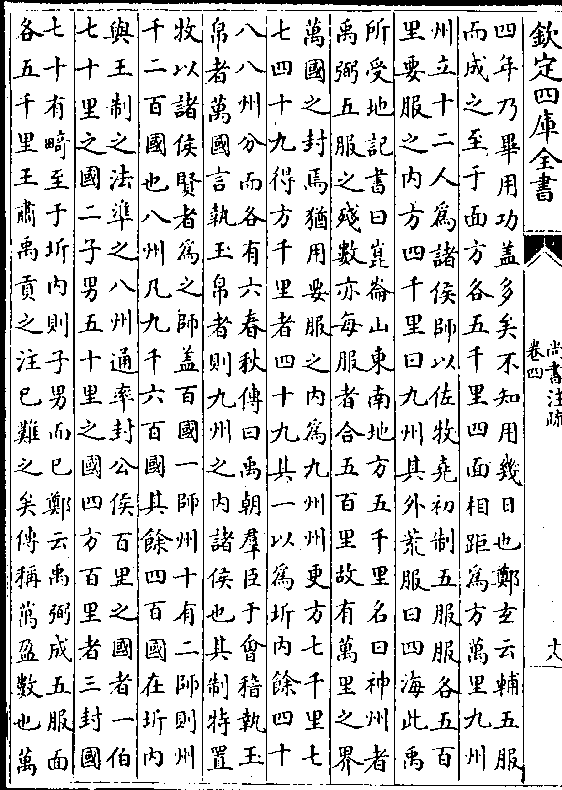 欽定四庫全書
尚書注疏
卷四
十八
四年乃畢用功盖多矣不知用幾日也鄭玄云輔五服
而成之至于面方各五千里四面相距爲方萬里九州
州立十二人爲諸侯師以佐牧堯初制五服服各五百
里要服之内方四千里曰九州其外荒服曰四海此禹
所受地記書曰崑崙山東南地方五千里名曰神州者
禹弼五服之殘數亦每服者合五百里故有萬里之界
萬國之封焉猶用要服之内爲九州州更方七千里七
七四十九得方千里者四十九其一以爲圻内餘四十
八八州分而各有六春秋傳曰禹朝羣臣于會稽執玉
帛者萬國言執玉帛者則九州之内諸侯也其制特置
牧以諸侯賢者爲之師盖百國一師州十有二師則州
千二百國也八州凡九千六百國其餘四百國在圻内
與王制之法準之八州通率封公侯百里之國者一伯
七十里之國二子男五十里之國四方百里者三封國
七十有畸至于圻内則子男而已鄭云禹弼成五服面
各五千里王肅禹貢之注已難之矣傳稱萬盈數也萬